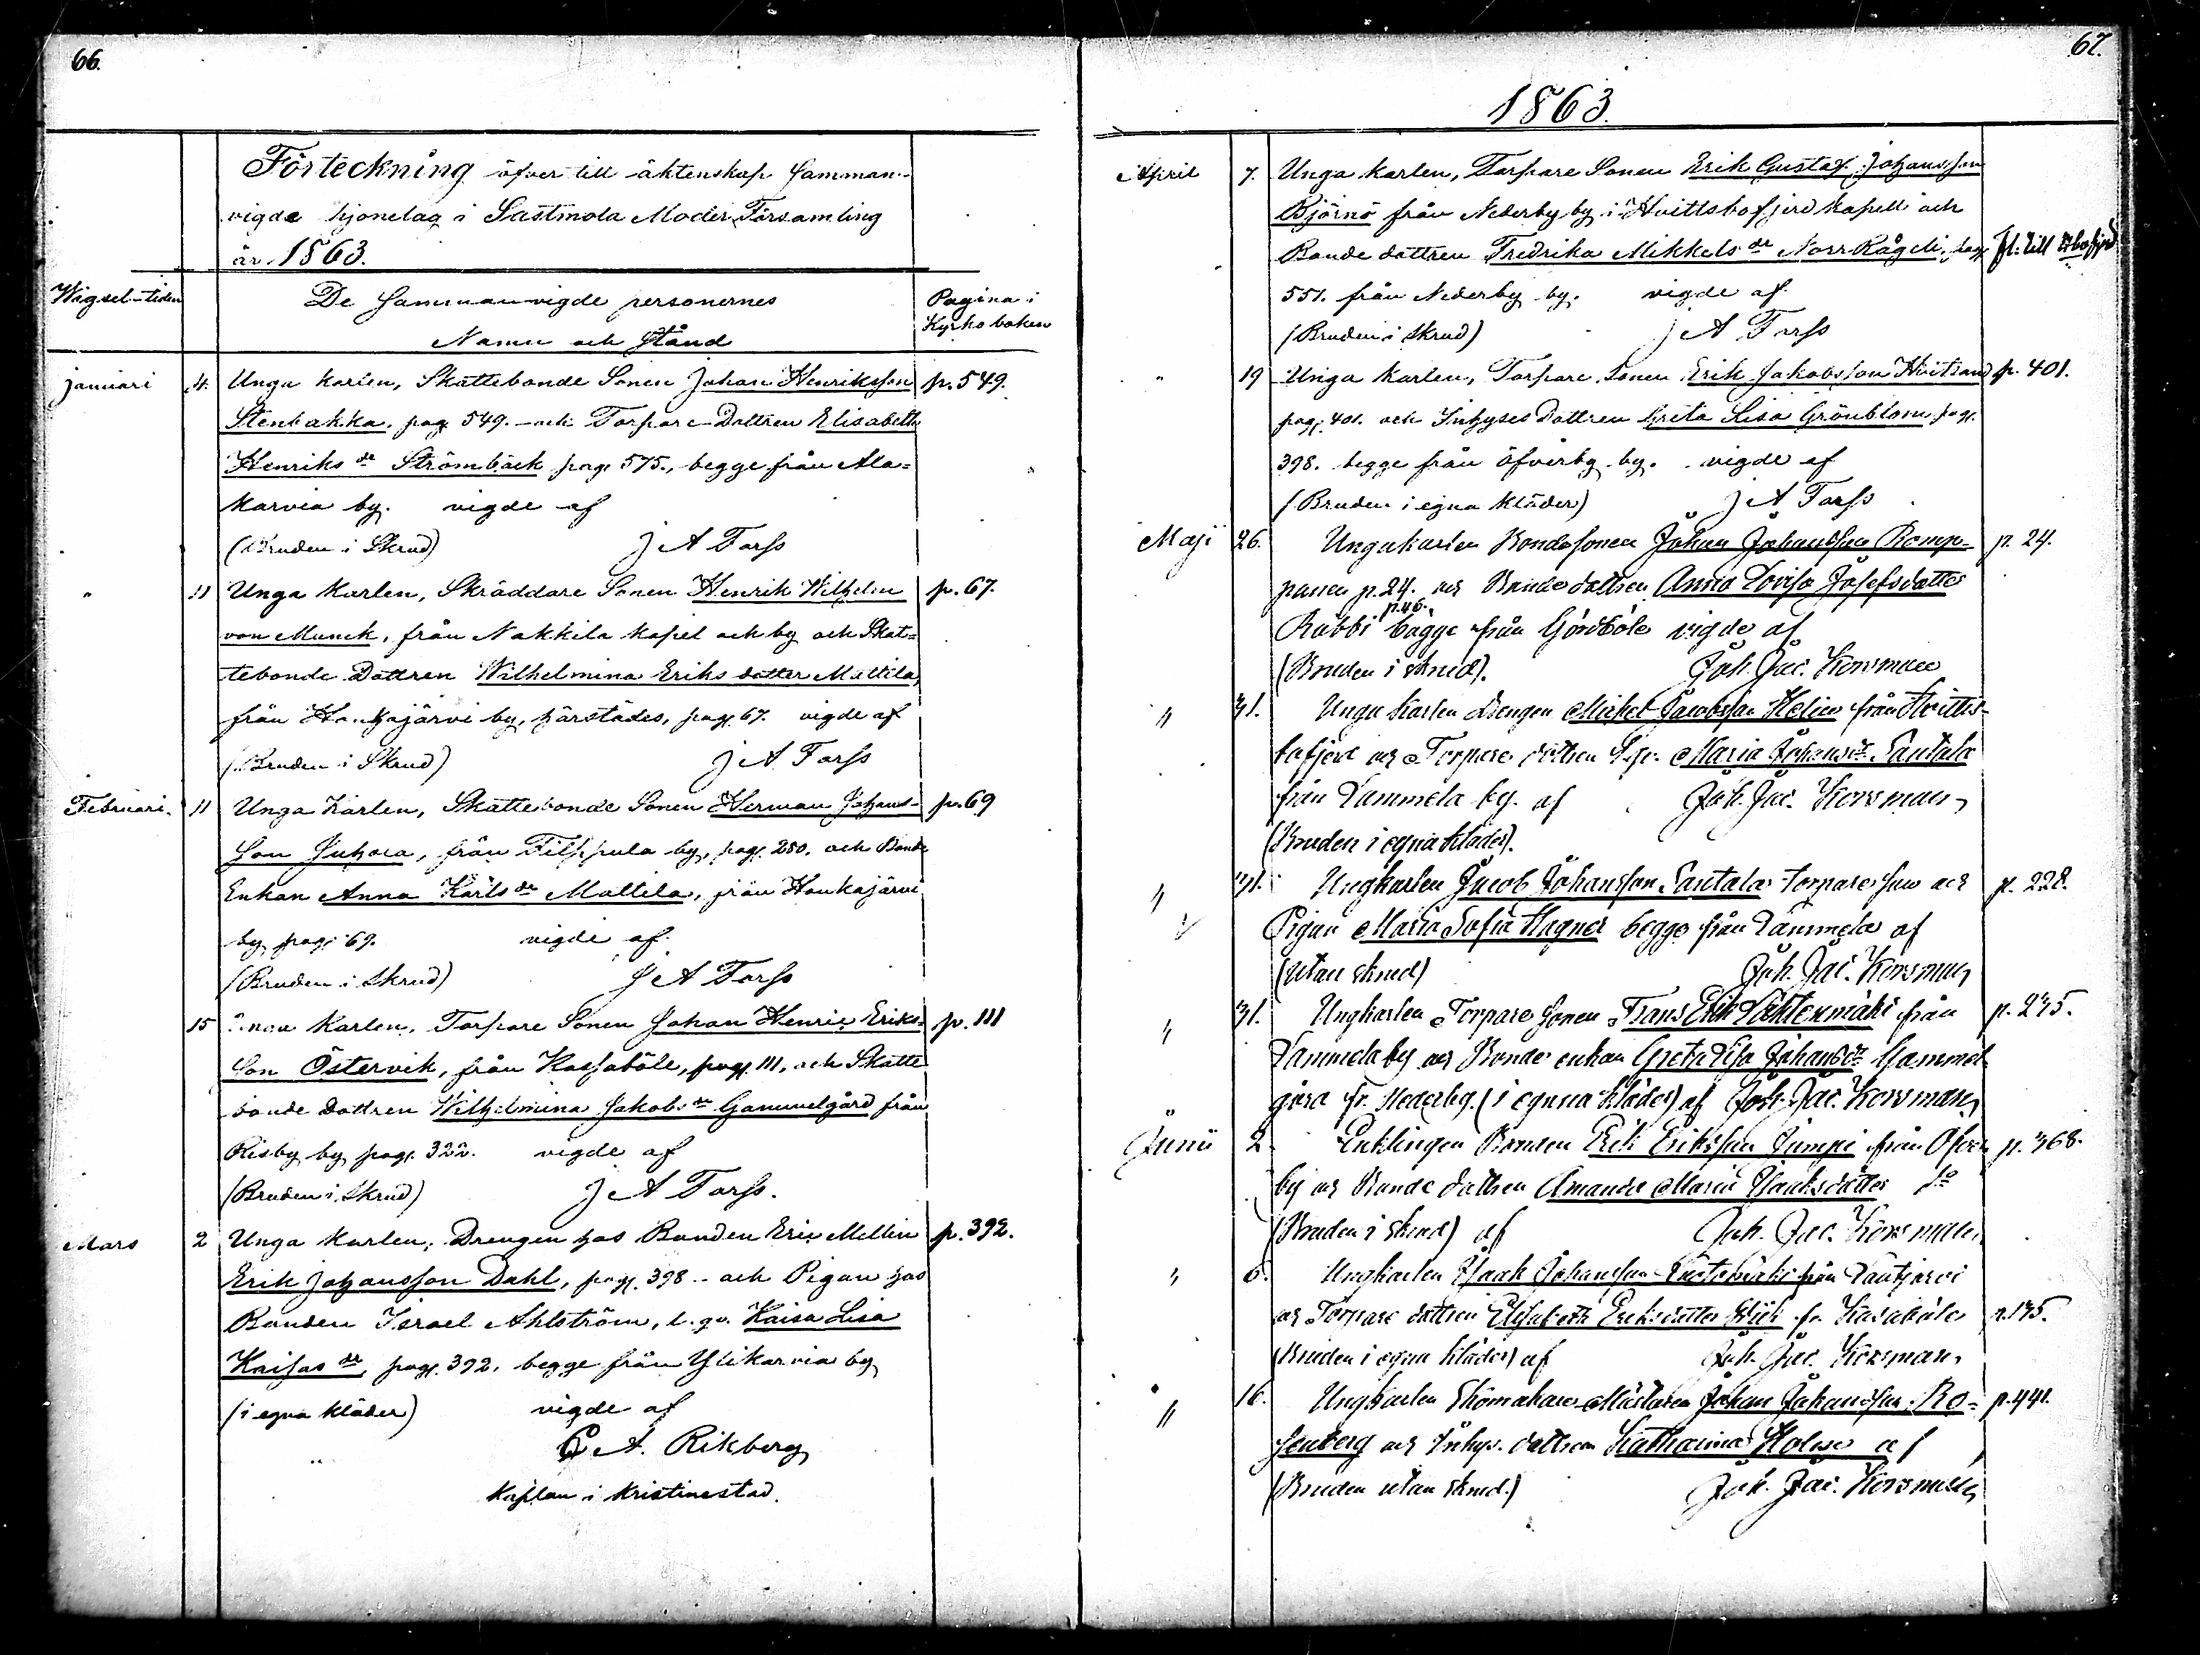 66.
Förteckning öfver till äktenskap samman-
vigde hjonelag i Sastmola Moder Församling
år 1863.
Wigsel-tiden
De sammanvigde personernes
Namn och Stånd
Pagina i
Kyrkoboken
Januari 4. Unga karlen, Skattebonde Sonen Johan Henriksson p. 549.
Stenbakka, pag. 549. och Torpare Dottren Elisabeth
Henriks dr Strömbäck pag. 575., begge från Ala-
karvia by. vigde af
(Bruden i Skrud) J A Forss
" 11 Unga Karlen, Skräddare Sonen Henrik Wilhelm p. 67.
von Munck, från Nakkila kapel och by och Skat-
tebonde Dottren Wilhelmina Eriks dotter Mattila,
från Honkajärvi by, härstädes, pag. 67. vigde af
(Bruden i Skrud) J A Forss
Februari. 11 Unga Karlen, Skattebonde Sonen Herman Johans- p. 69
son Juhola, från Filppula by, pag. 280. och Bonde
Enkan Anna Karls dr Mattila, från Honkajärvi
by pag. 69. vigde af
(Bruden i Skrud) J A Forss
15 Unga Karlen, Torpare Sonen Johan Henric Eriks- p. 111
son Östervik, från Kasaböle, pag. 111, och Skatte
bonde Dottren Wilhelmina Jakobs dr Gammelgård från
Risby by pag. 322. vigde af
(Bruden i Skrud) J A Forss.
Mars 2 Unga Karlen, Drengen hos Bonden Eric Mellin p. 392.
Erik Johansson Dahl, pag. 398 - och Pigan hos
Bonden Israel Ahlström, Kaisa Lisa
Kaisas dr, pag. 392, begge från Ylikarvia by
(i egna kläder) vigde af
A. Rikberg
Kaplan i Kristinestad.
67.
1863.
April 7. Unga karlen, Torpare Sonen Erik Gustaf Johansson
Björnö från Nederby by i Hvittsbofjerd Kapell och
Bonde dottren Fredrika Mikkels dr Norr pag. fl. till
551. från Nederby by. vigde af
(Bruden i skrud) J A Forss
" 19 Unga Karlen, Torpare Sonen Erik Jakobsson Hvitsand p. 401.
pag. 401. och Inhyses Dottren Greta Lisa Grönblom pag.
398. begge från öfverby by. vigde af
(Bruden i egna kläder) J A Forss
Maji 26. Ungakarlen Bondesonen Johan Johansson Romp- p. 24.
panen p. 24. och Bonde dottren Anna Lovisa Josefsdotter
p. 46.
Rabbi bagge från Gördböle vigde af
(Bruden i skrud). Joh. Jac. Korsman
" 31. Unga Karlen Drengen Mickel Jacobsson Helin från Hvittis-
bofjerd och Torpare dottren Maria Johans dr Santala
från Lammela by. af Joh. Jac. Korsman
(Bruden i egna kläder).
" 31. Ungkarlen Jacob Johansson Santala torpare son och p. 228.
Pigan Maria Sofia Hagner begge från Lammela af
(utan skrud) Joh. Jac. Korsman
" 31. Ungkarlen Torpare Sonen Frans Erik från p. 235.
Lammela by och Bonde enkan Greta Lisa Johans dr Gammel
gård fr. Nederby. (i egna kläder) af Joh. Jac. Korsman
Junii 2 Enklingen Bonden Erik Eriksson från Öfver p. 368.
by och Bonde dottren Amanda Maria Isaksdotter do
(Bruden i skrud) af Joh. Jac. Korsman
" 6. Ungkarlen Isaak Johansson från
och Torpare dottren Elisabeth Eriksdotter fr. Kasaböle p. 135.
(Bruden i egna kläder) af Joh. Jac. Korsman
" 16. Ungkarlen Skomakare Mästaren Johan Johansson Ro- p. 441.
senberg och Inhys. dottren Katharina af
(Bruden utan skrud.) Joh. Jac. Korsman